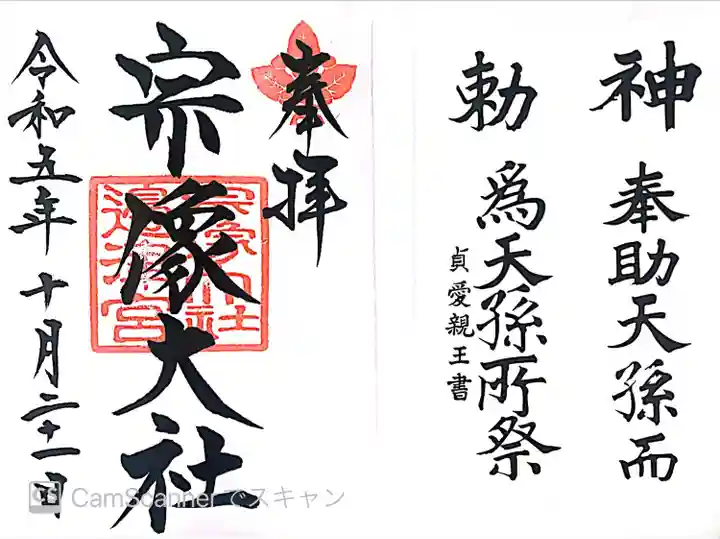 神勅
奉助天孫而
為天孫所祭
貞愛親王書
奉拝
宗像大社
宗像大社
邊津宮
令和五年十月二十一日
CamScannerでスキャン